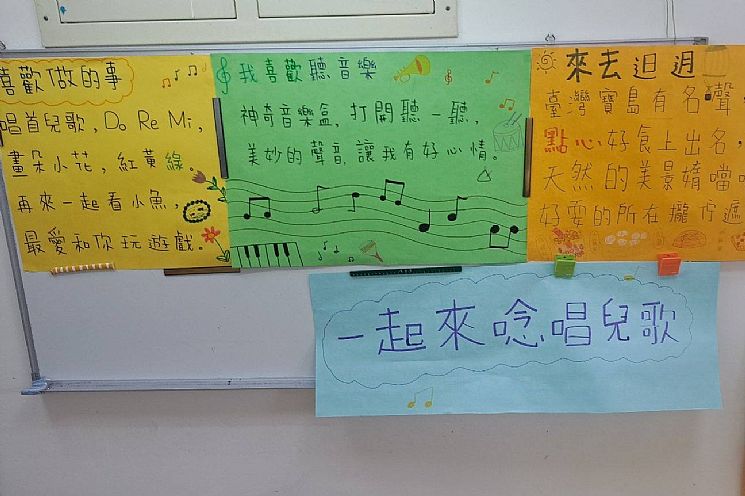 喜歡做的事
唱首兒歌，Do Re Mi，
畫朵小花，紅黃綠。
再來一起看小魚，
最愛和你玩遊戲。
我喜歡聽音樂
神奇音樂盒，打開聽一聽，
美妙的聲音，讓我有好心情。
來去𨑨迌
臺灣寶島有名聲，
點心好食上出名，
天然的美景媠噹
好耍的所在攏佇遮
一起來唸唱兒歌